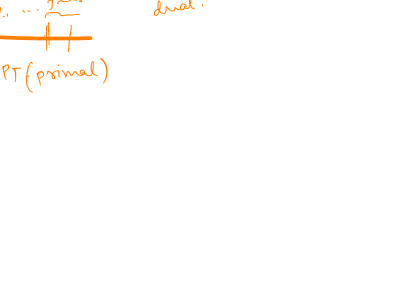 dual.
PT(primal)